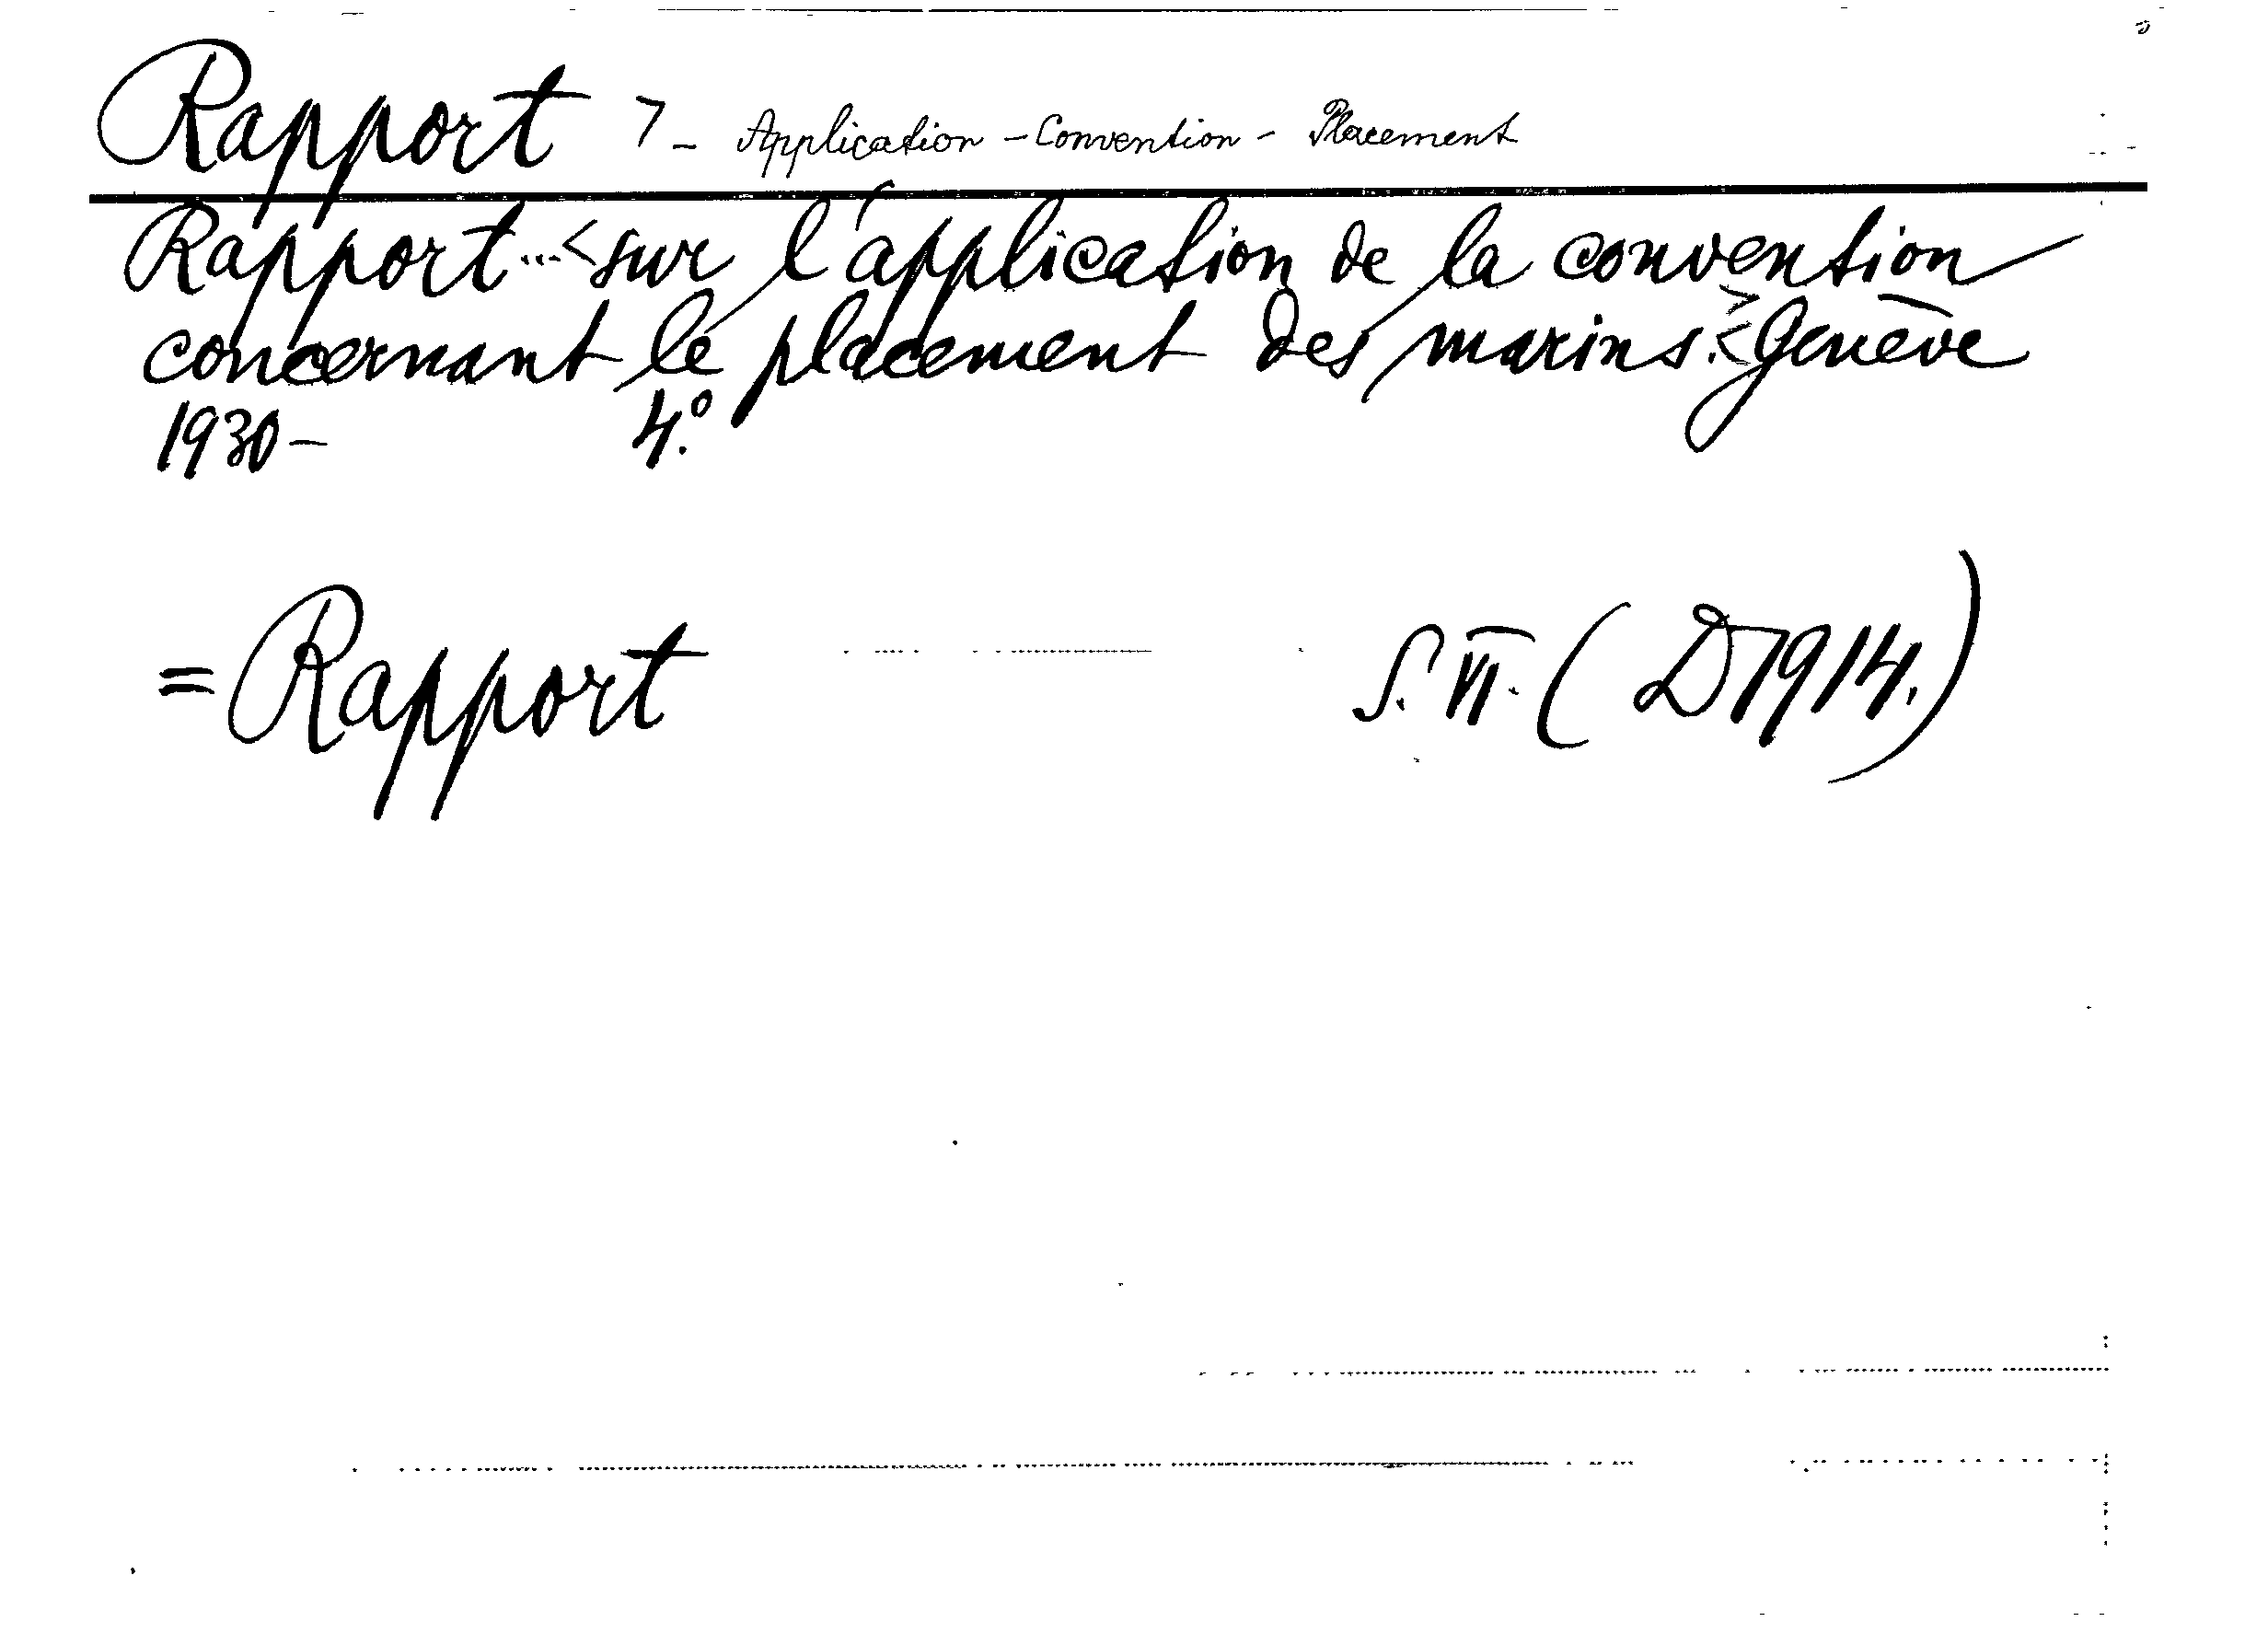 Rapport 7 - Application - Convention - Placement
Rapport ... < sur l'application de la convention
concernant le placement des marins. > < Genève
1930 - 4.º
= Rapport S. VI. (D7914.)